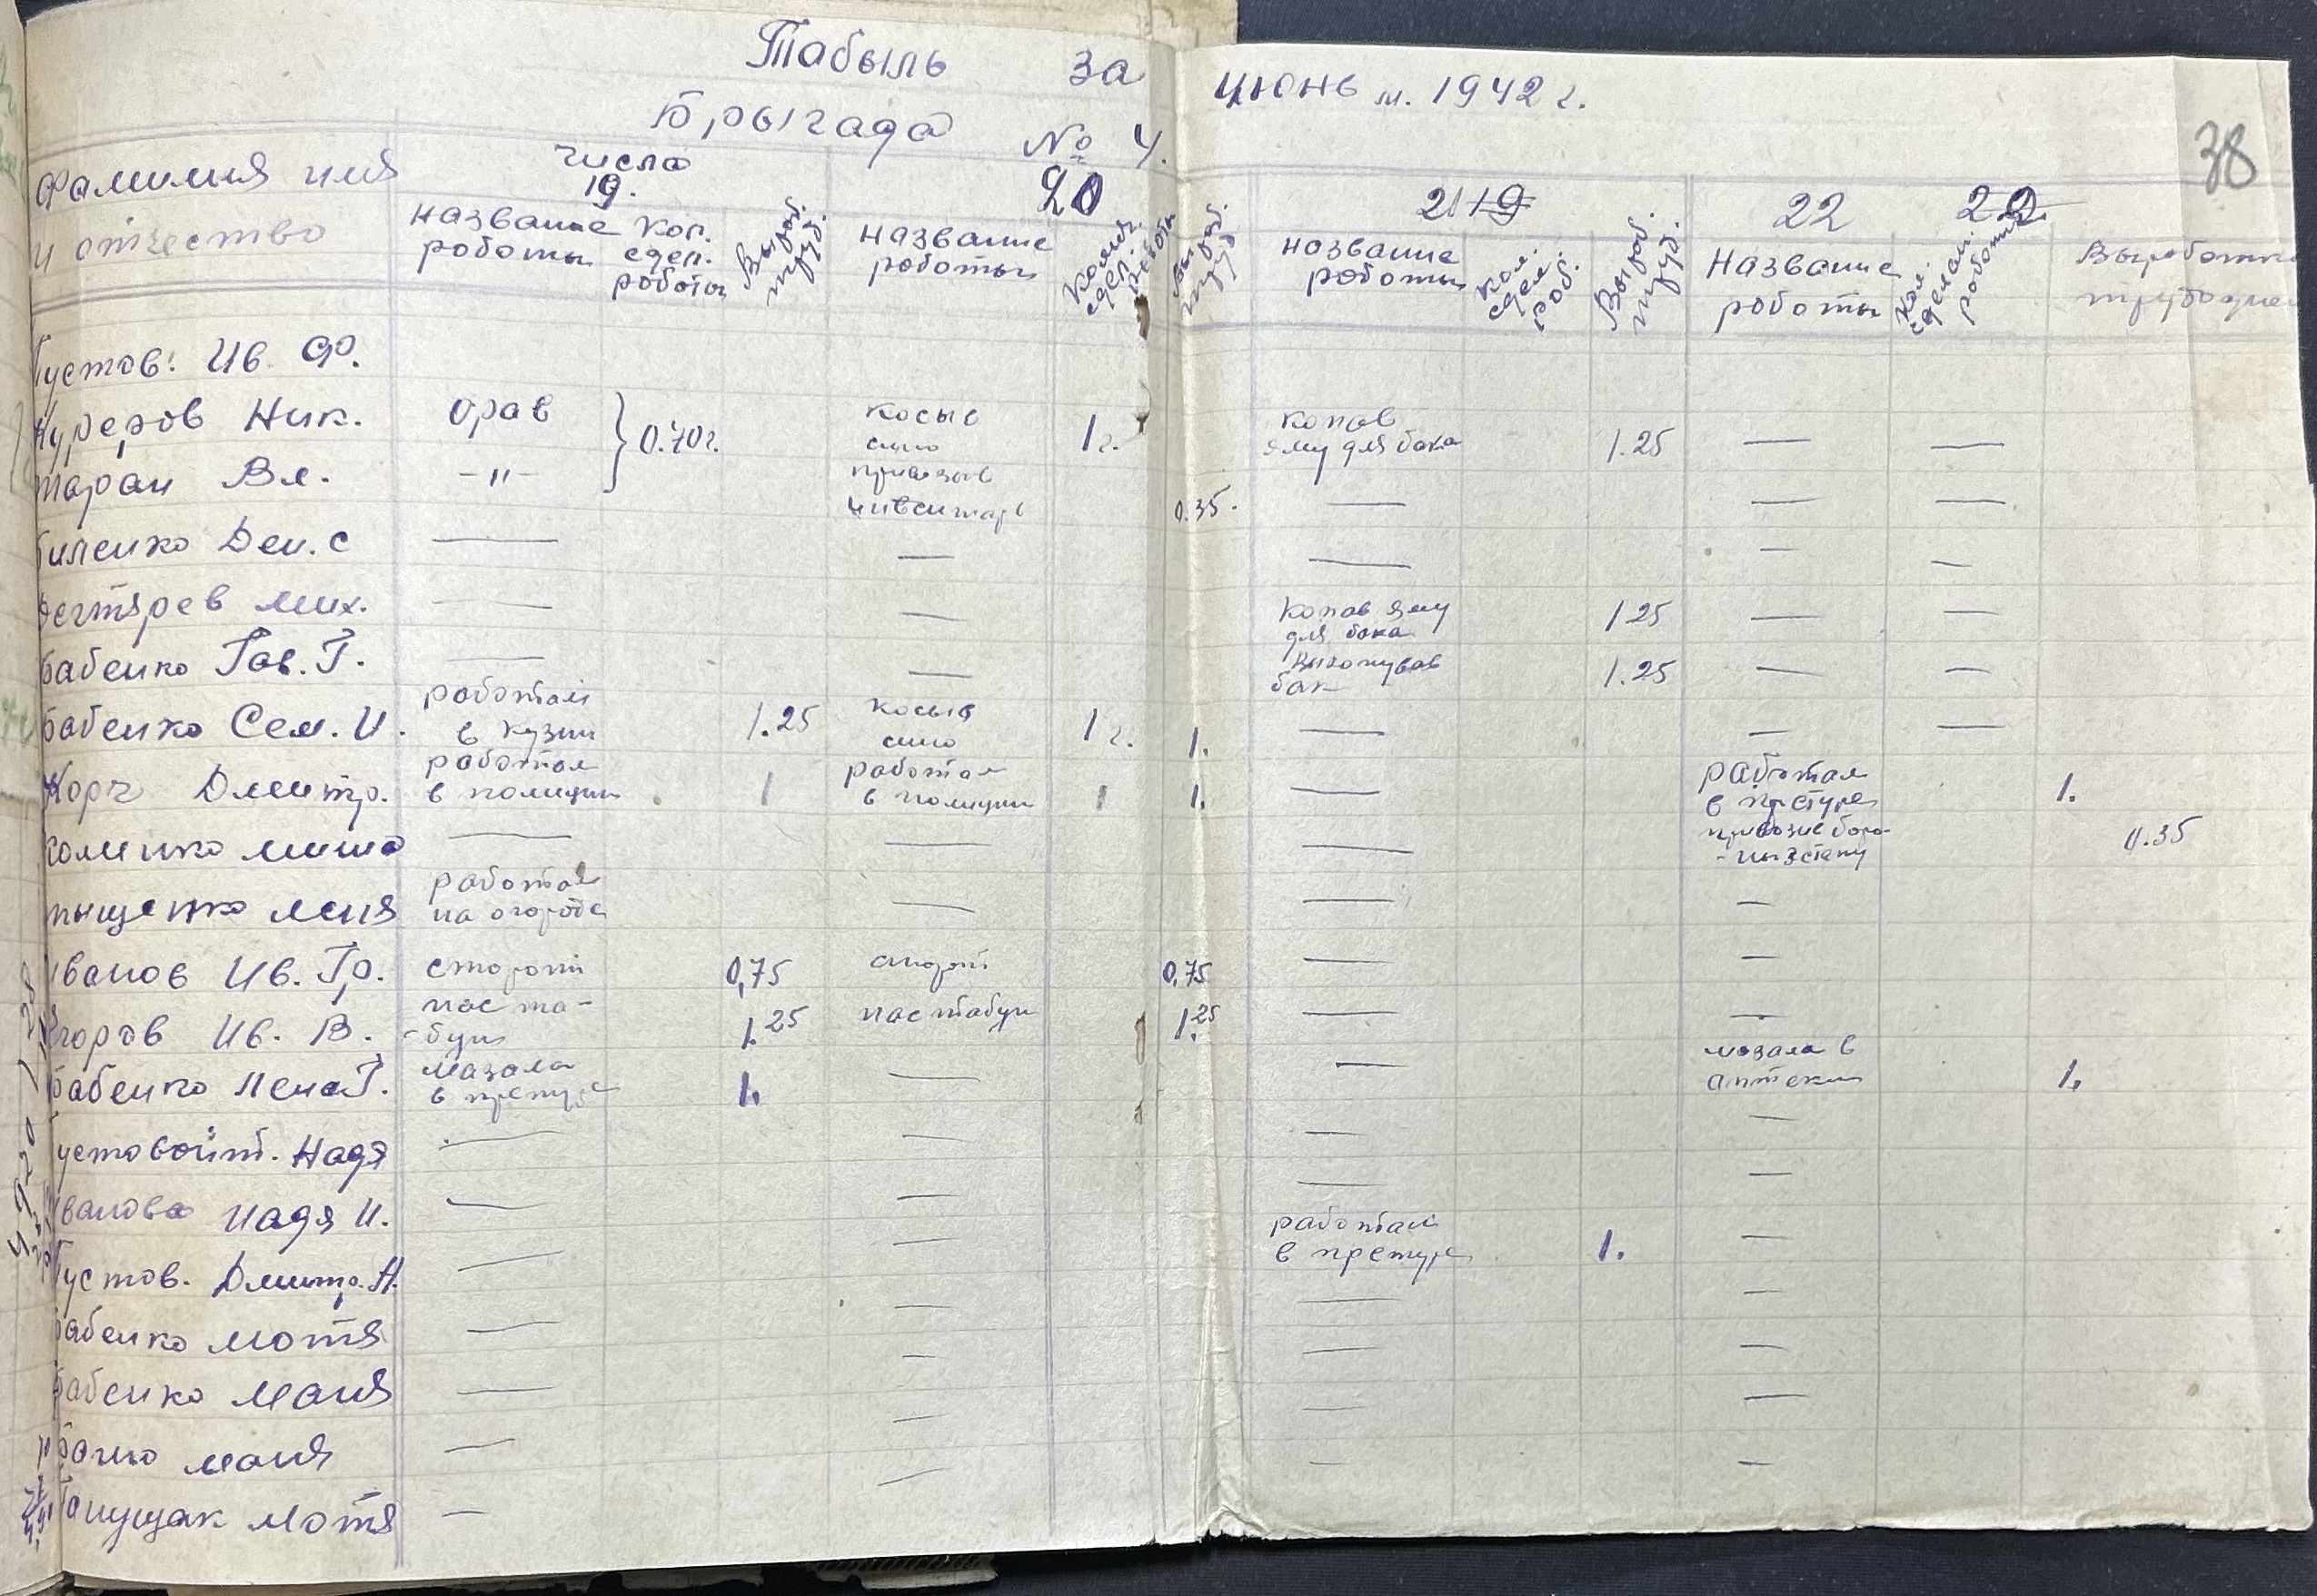 Табыль за июнь м. 1942 г.
Брыгада № 4.
38
Фамилия имя и отчество
числа
19. 20 21 19 22 22
название роботы Кол. сдел. роботы Выраб. труд. название роботы Колич. сдел. работы Выраб. труд.
название роботы Кол. сдел. роб. Выраб. труд. Название роботы Кол. сделан. роботы Выработка трудодней
устов. Ив. Ф.
Ник. орав 0.70 г. косыв сино 1 г. копав яму для бака 1.25 — —
таран Вл. -"- привозыв инвентарь 0.35. — — —
иленко Ден. С — — — — —
егтярев мих. — — копав яму для бака 1 25 — —
бабенко Гав. Г. — — выкопував бак 1.25 — —
бабенко Сем. И. работал в кузни 1.25 косыв сино 1 г. 1. — — —
Корч Дмитр. работал в полиции 1 работал в полиции 1 1. — работал в претуре 1.
коменко миша — — — привозив боро- -ны з степу 0.35
ыщенко маня работал на огороде — — —
иванов Ив. Гр. сторож 0,75 сторож 0,75 — —
горов Ив. В. пас та- -бун 1.25 пас табун 1.25 — —
бабенко Лена Г. мазала в претуре 1. — — мазала в аптеки 1.
устовойт. Надя — — — —
ванова Надя И. — — — —
устов. Дмитр. А. — — работал в претуре 1. —
бабенко мотя — — — —
бабенко маня — — — —
маня — — — —
мотя — — — —